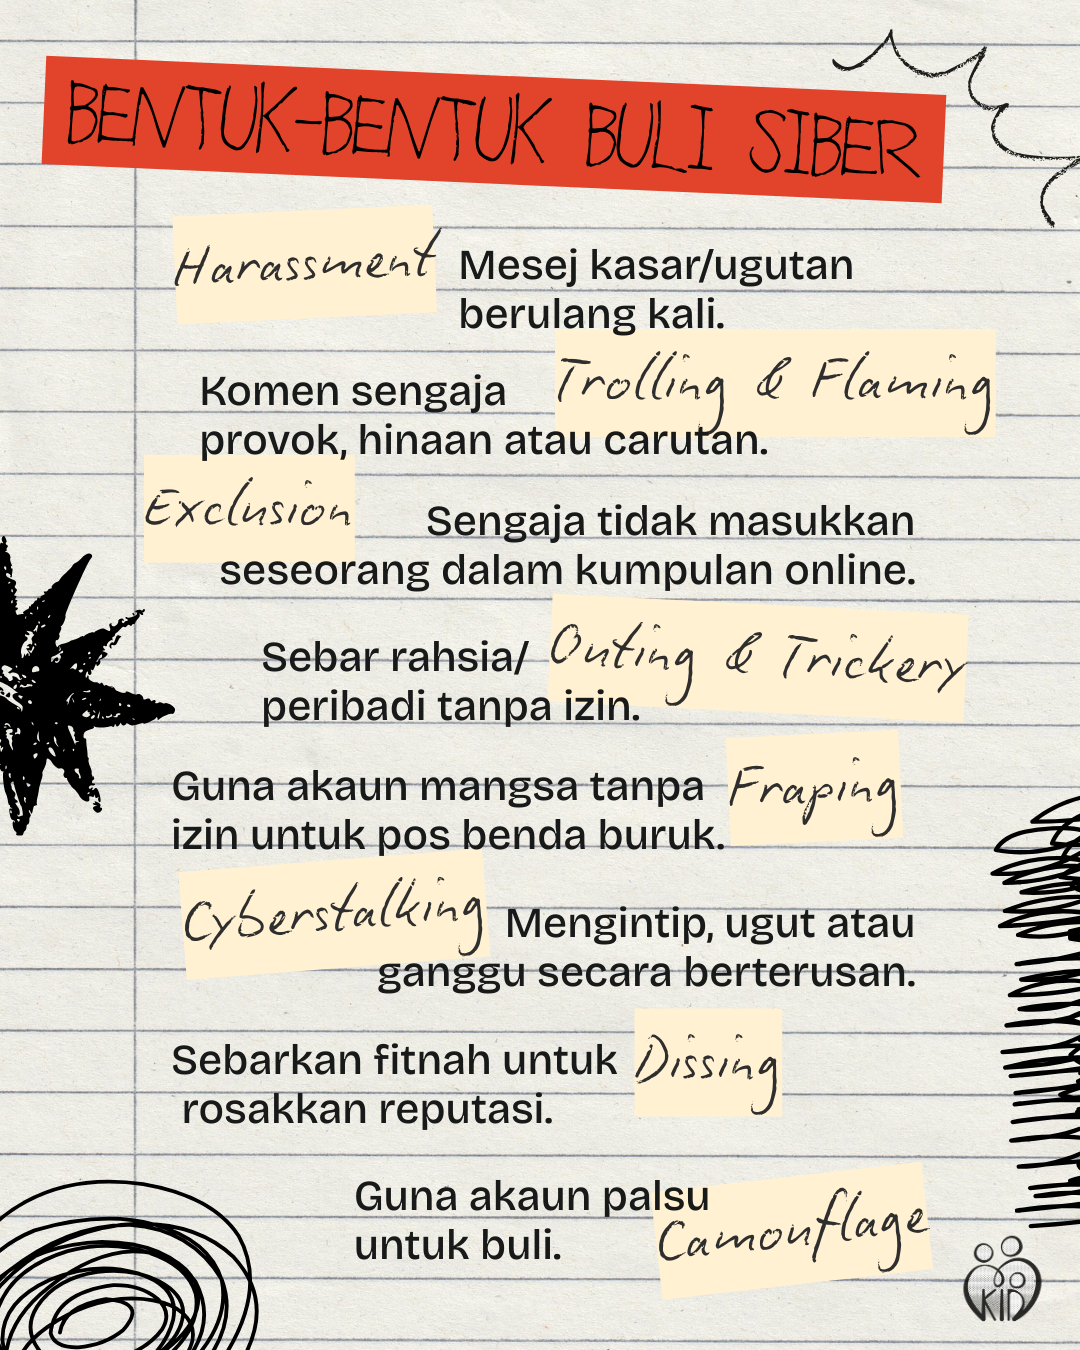 BENTUK-BENTUK BULI SIBER
Harassment
Mesej kasar/ugutan
berulang kali.
Trolling & Flaming
Komen sengaja
provok, hinaan atau carutan.
Exclusion
Sengaja tidak masukkan
seseorang dalam kumpulan online.
Outing & Trickery
Sebar rahsia/
peribadi tanpa izin.
Fraping
Guna akaun mangsa tanpa
izin untuk pos benda buruk.
Cyberstalking
Mengintip, ugut atau
ganggu secara berterusan.
Dissing
Sebarkan fitnah untuk
rosakkan reputasi.
Camouflage
Guna akaun palsu
untuk buli.
KID